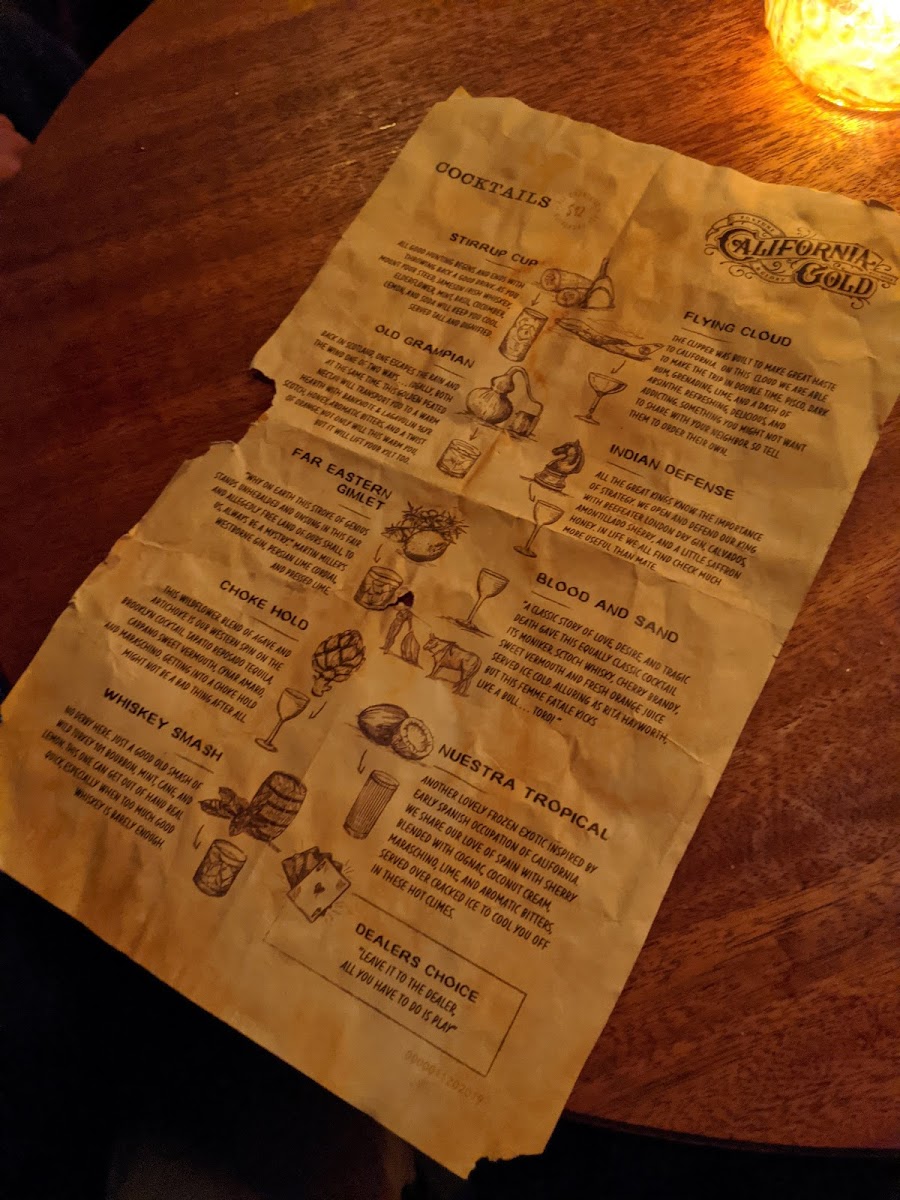 COCKTAILS
$12
CALIFORNIA
GOLD
STIRRUP CUP
ALL GOOD HUNTING BEGINS AND ENDS WITH
THROWING BACK A GOOD DRINK. AS YOU
MOUNT YOUR STEED, JAMESON IRISH WHISKEY,
ELDERFLOWER, MINT, BASIL, CUCUMBER,
LEMON, AND SODA WILL KEEP YOU COOL.
SERVED TALL AND DIGNIFIED.
OLD GRAMPIAN
BACK IN SCOTLAND, ONE ESCAPES THE RAIN AND
THE WIND ONE OF TWO WAYS . . . IDEALLY, BOTH
AT THE SAME TIME. THIS GOLDEN PEATED
NECTAR WILL TRANSPORT YOU TO A WARM
HEARTH WITH BANKNOTE & LAGAVULIN 16YR
SCOTCH, HONEY, AROMATIC BITTERS, AND A TWIST
OF ORANGE. NOT ONLY WILL THIS WARM YOU,
BUT IT WILL LIFT YOUR KILT TOO.
FAR EASTERN
GIMLET
"WHY ON EARTH THIS STROKE OF GENIUS
STANDS UNHERALDED AND UNSUNG IN THIS FAIR
AND ALLEGEDLY FREE LAND OF OURS SHALL, TO
US, ALWAYS BE A MYSTERY" MARTIN MILLER'S
WESTBOURNE GIN, PERSIAN LIME CORDIAL
AND PRESSED LIME.
CHOKE HOLD
THIS WILDFLOWER BLEND OF AGAVE AND
ARTICHOKE IS OUR WESTERN SPIN ON THE
BROOKLYN COCKTAIL. TAPATIO REPOSADO TEQUILA,
CARPANO SWEET VERMOUTH, CYNAR AMARO,
AND MARASCHINO. GETTING INTO A CHOKE HOLD
MIGHT NOT BE A BAD THING AFTER ALL.
WHISKEY SMASH
NO DERBY HERE. JUST A GOOD OLD SMASH OF
WILD TURKEY 101 BOURBON, MINT, CANE, AND
LEMON. THIS ONE CAN GET OUT OF HAND REAL
QUICK, ESPECIALLY WHEN TOO MUCH GOOD
WHISKEY IS BARELY ENOUGH.
FLYING CLOUD
THE CLIPPER WAS BUILT TO MAKE GREAT HASTE
TO CALIFORNIA. ON THIS CLOUD WE ARE ABLE
TO MAKE THE TRIP IN DOUBLE TIME. PISCO, DARK
RUM, GRENADINE, LIME, AND A DASH OF
ABSINTHE. REFRESHING, DELICIOUS, AND
ADDICTING. SOMETHING YOU MIGHT NOT WANT
TO SHARE WITH YOUR NEIGHBOR, SO TELL
THEM TO ORDER THEIR OWN.
INDIAN DEFENSE
ALL THE GREAT KINGS KNOW THE IMPORTANCE
OF STRATEGY. WE OPEN AND DEFEND OUR KING
WITH BEEFEATER LONDON DRY GIN, CALVADOS,
AMONTILLADO SHERRY, AND A LITTLE SAFFRON
HONEY. IN LIFE WE ALL FIND CHECK MUCH
MORE USEFUL THAN MATE.
BLOOD AND SAND
"A CLASSIC STORY OF LOVE, DESIRE, AND TRAGIC
DEATH GAVE THIS EQUALLY CLASSIC COCKTAIL
ITS MONIKER. SCTOCH WHISKY, CHERRY BRANDY,
SWEET VERMOUTH AND FRESH ORANGE JUICE
SERVED ICE COLD. ALLURING AS RITA HAYWORTH,
BUT THIS FEMME FATALE KICKS
LIKE A BULL. . . . TORO! "
NUESTRA TROPICAL
ANOTHER LOVELY FROZEN EXOTIC INSPIRED BY
EARLY SPANISH OCCUPATION OF CALIFORNIA.
WE SHARE OUR LOVE OF SPAIN WITH SHERRY
BLENDED WITH COGNAC, COCONUT CREAM,
MARASCHINO, LIME, AND AROMATIC BITTERS.
SERVED OVER CRACKED ICE TO COOL YOU OFF
IN THESE HOT CLIMES.
DEALERS CHOICE
"LEAVE IT TO THE DEALER,
ALL YOU HAVE TO DO IS PLAY"